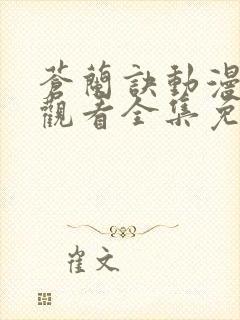 蒼蘭訣動漫
觀看全集免
崔文